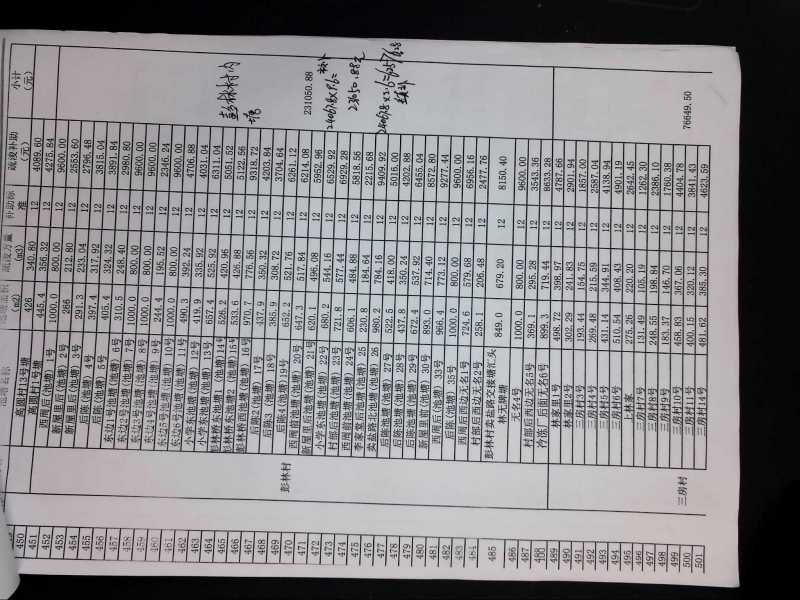 池塘名称 池塘面积 (m2) 疏浚方量 (m3) 补助标准 疏浚补助 (元) 小计 (元)
高圆村13号塘 426 340.80 12 4089.60
450 高圆村1号塘 445.4 356.32 12 4275.84
451 西周后(池塘) 1号 1000.0 800.00 12 9600.00
452 新屋里后(池塘) 2号 266 212.80 12 2553.60
453 新屋里后(池塘) 3号 291.3 233.04 12 2796.48
454 后陈(池塘) 4号 397.4 317.92 12 3815.04
455 后陈(池塘) 5号 405.4 324.32 12 3891.84
456 东边1号池塘(池塘) 6号 310.5 248.40 12 2980.80
457 东边2号池塘(池塘) 7号 1000.0 800.00 12 9600.00
458 东边3号池塘(池塘) 8号 1000.0 800.00 12 9600.00
459 东边4号池塘(池塘) 9号 244.4 195.52 12 2346.24
460 东边5号池塘(池塘) 10号 1000.0 800.00 12 9600.00
461 东边6号池塘(池塘) 11号 490.3 392.24 12 4706.88
462 小学东池塘(池塘) 12号 419.9 335.92 12 4031.04
463 小学东池塘(池塘) 13号 657.4 525.92 12 6311.04
464 彭林桥东池塘1(池塘)14号 526.2 420.96 12 5051.52
465 彭林桥东池塘2(池塘)15号 533.6 426.88 12 5122.56
466 彭林桥西池塘(池塘) 16号 970.7 776.56 12 9318.72
467 后陈2(池塘) 17号 437.9 350.32 12 4203.84
468 后陈3(池塘) 18号 385.9 308.72 12 3704.64
469 后陈4(池塘)19号 652.2 521.76 12 6261.12
470 西周前池塘(池塘) 20号 647.3 517.84 12 6214.08
471 新屋里后池塘(池塘) 21号 620.1 496.08 12 5952.96
472 小学东池塘前(池塘) 22号 680.2 544.16 12 6529.92
473 村部后池塘(池塘) 23号 721.8 577.44 12 6929.28
474 西周前池塘(池塘) 24号 606.1 484.88 12 5818.56
475 李家堂后池塘(池塘) 25 230.8 184.64 12 2215.68
476 卖盐路东池塘(池塘) 26 980.2 784.16 12 9409.92
477 后陈池塘(池塘) 27号 522.5 418.00 12 5016.00
478 后陈池塘(池塘) 28号 437.8 350.24 12 4202.88
479 后陈池塘(池塘) 29号 672.4 537.92 12 6455.04
480 新屋里前(池塘) 30号 893.0 714.40 12 8572.80
481 西周后(池塘) 33号 966.4 773.12 12 9277.44
482 后陈(池塘) 35号 1000.0 800.00 12 9600.00
483 西周后西边无名1号 724.6 579.68 12 6956.16
484 村部后西边无名2号 258.1 206.48 12 2477.76
485 彭林村卖盐路交接塘汇头林无牌塘 849.0 679.20 12 8150.40
486 无名4号 1000.0 800.00 12 9600.00
487 村部后西边无名5号 369.1 295.28 12 3543.36
488 冷冻厂后面无名6号 899.3 719.44 12 8633.28
彭林村
彭林村内塘
231050.88
240678×9.6=
23650.88元
489 林家里1号 498.72 398.97 12 4787.66
490 林家里2号 302.29 241.83 12 2901.94
491 三房村3号 193.44 154.75 12 1857.00
492 三房村4号 269.48 215.59 12 2587.04
493 三房村5号 431.14 344.91 12 4138.94
494 三房村6号 510.54 408.43 12 4901.19
495 七林家 275.26 220.20 12 2642.45
496 三房村7号 131.49 105.19 12 1262.30
497 三房村8号 248.55 198.84 12 2386.10
498 三房村9号 183.37 146.70 12 1760.38
499 三房村10号 458.83 367.06 12 4404.78
500 三房村11号 400.15 320.12 12 3841.43
501 三房村14号 481.62 385.30 12 4623.59
三房村
76649.50